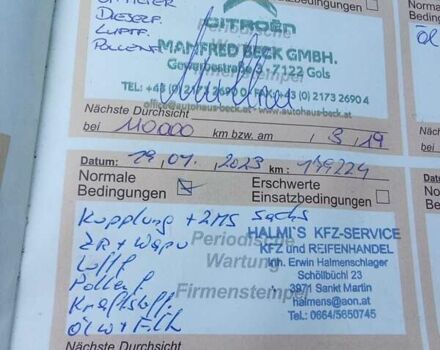 DIESELF.
LUFTF.
POLLENF.
CITROËN
MANFRED BECK GMBH.
Gewerbestraße - 7122 Gols
TEL: +43 (0) 2173 2690 0 FAX: +43 (0) 2173 2690 4
office@autohaus-beck.at www.autohaus-beck.at
Periodische
Wartung
Firmenstempel
Einsatzbedingungen
Öl
Nächste Durchsicht
bei 110.000 km bzw. am 3/19
Datum: 19,01,2023 km: 149224
Normale
Bedingungen
Erschwerte
Einsatzbedingungen
Kupplung + 2MS Sachs
ZR + Wapu
Luftf
Pollenf.
Kraftstoff.
Öl W + Filt
Periodische
Wartung
Firmenstempel
HALMI`S KFZ-SERVICE
KFZ und REIFENHANDEL
Inh. Erwin Halmenschlager
Schöllbüchl 23
3971 Sankt Martin
halmens@aon.at
Tel.: 0664/5650745
Nächste Durchsicht